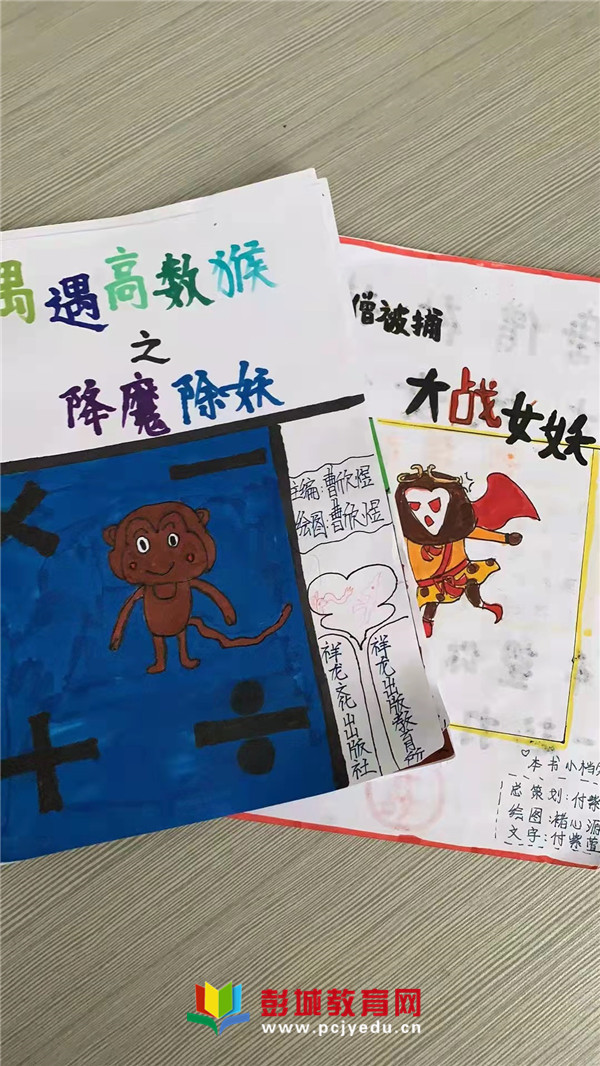 偶遇高数猴
之
降魔除妖
主编:曹欣煜
绘图:曹欣煜
祥龙文化出版社
祥龙出版教育所
僧被捕
大战女妖
本书小档
总策划:付紫
绘图:褚心源
文字:付紫萱
彭城教育网
www.pcjyedu.cn